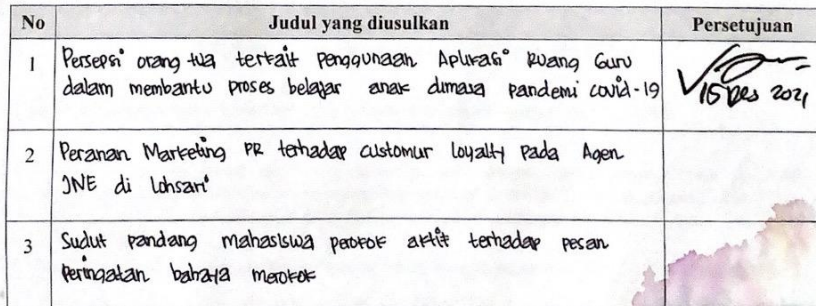 No Judul yang diusulkan Persetujuan
1 Persepsi orang tua terkait penggunaan Aplikasi Ruang Guru
dalam membantu proses belajar anak dimasa pandemi covid-19
15 Des 2021
2 Peranan Marketing PR terhadap customur loyalty pada Agen
JNE di Lohsari
3 Sudut pandang mahasiswa perokok aktif terhadap pesan
peringatan bahaya merokok